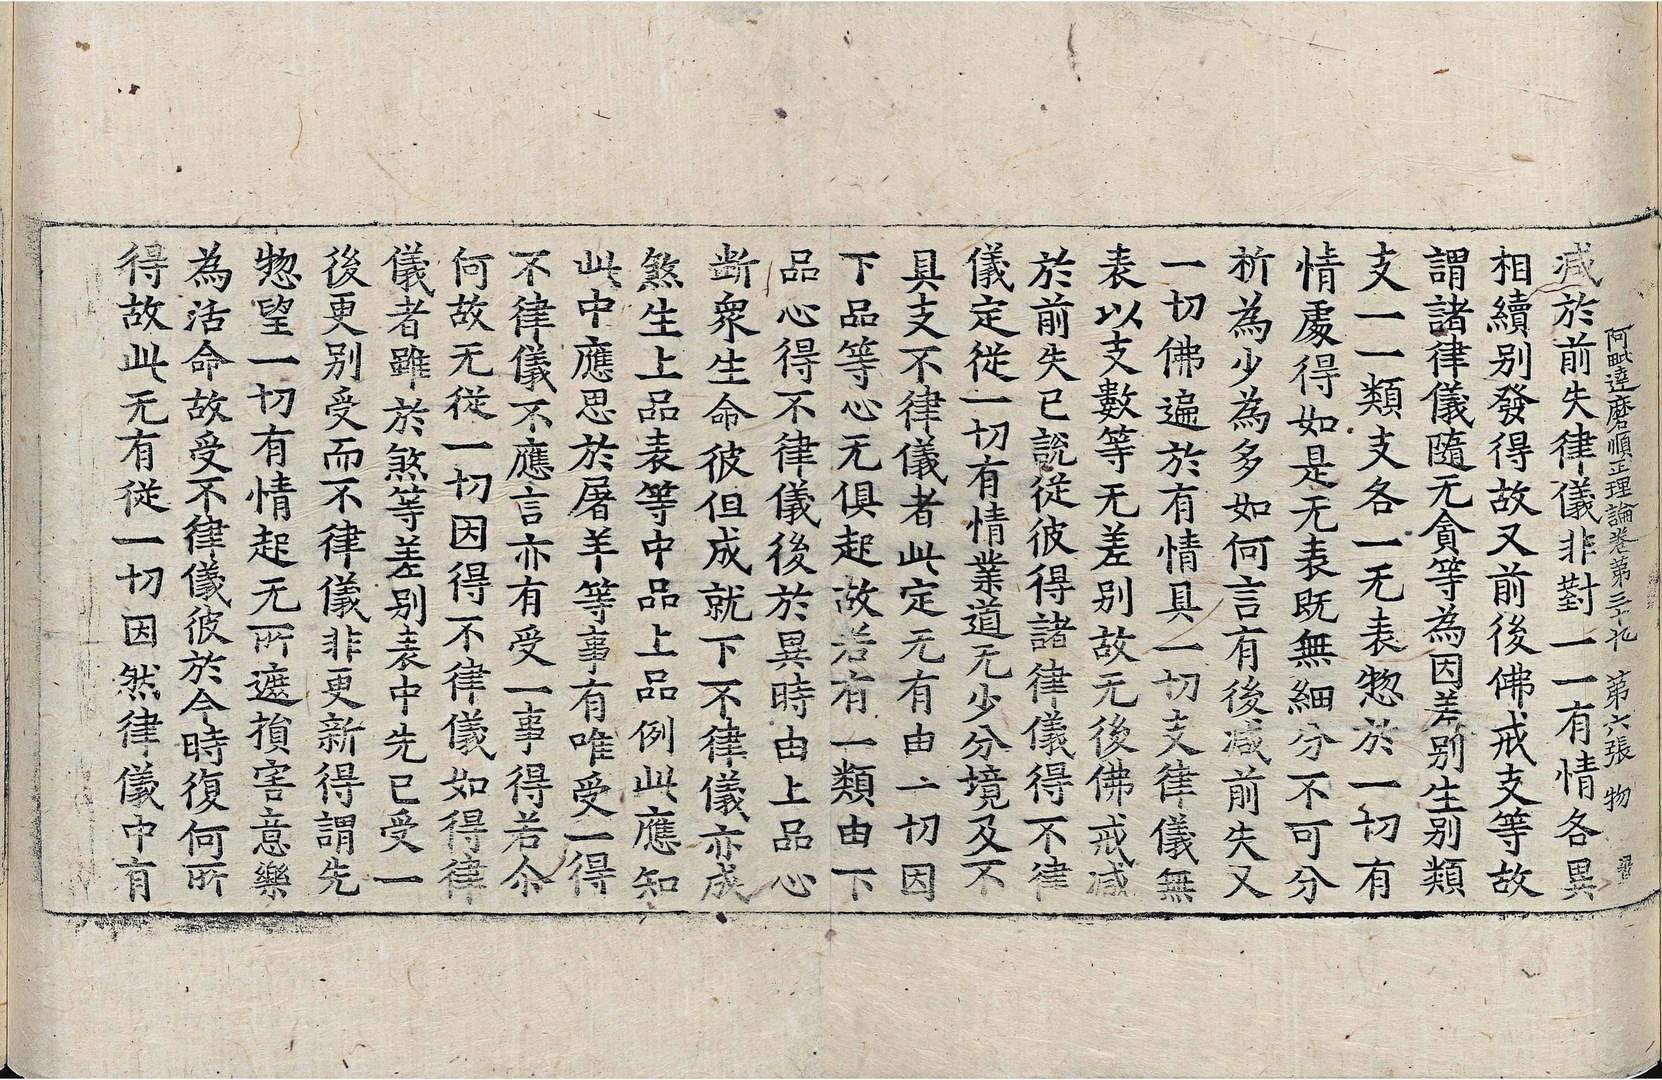 阿毗達磨順正理論卷第三十九　第六張　物
減於前失律儀非對一一有情各異
相續別發得故又前後佛戒支等故
謂諸律儀隨无貪等為因差別生別類
支一一類支各一无表惣於一切有
情處得如是无表既無細分不可分
析為少為多如何言有後減前失又
一切佛遍於有情具一切支律儀無
表以支數等无差別故无後佛戒減
於前失已說從彼得諸律儀得不律
儀定從一切有情業道无少分境及不
具支不律儀者此定无有由一切因
下品等心无俱起故若有一類由下
品心得不律儀後於異時由上品心
断衆生命彼但成就下不律儀亦成
煞生上品表等中品上品例此應知
此中應思於屠羊等事有唯受一得
不律儀不應言亦有受一事得若尒
何故无從一切因得不律儀如得律
儀者雖於煞等差別表中先已受一
後更別受而不律儀非更新得謂先
惣望一切有情起无所遮損害意樂
為活命故受不律儀彼於今時復何所
得故此无有從一切因然律儀中有